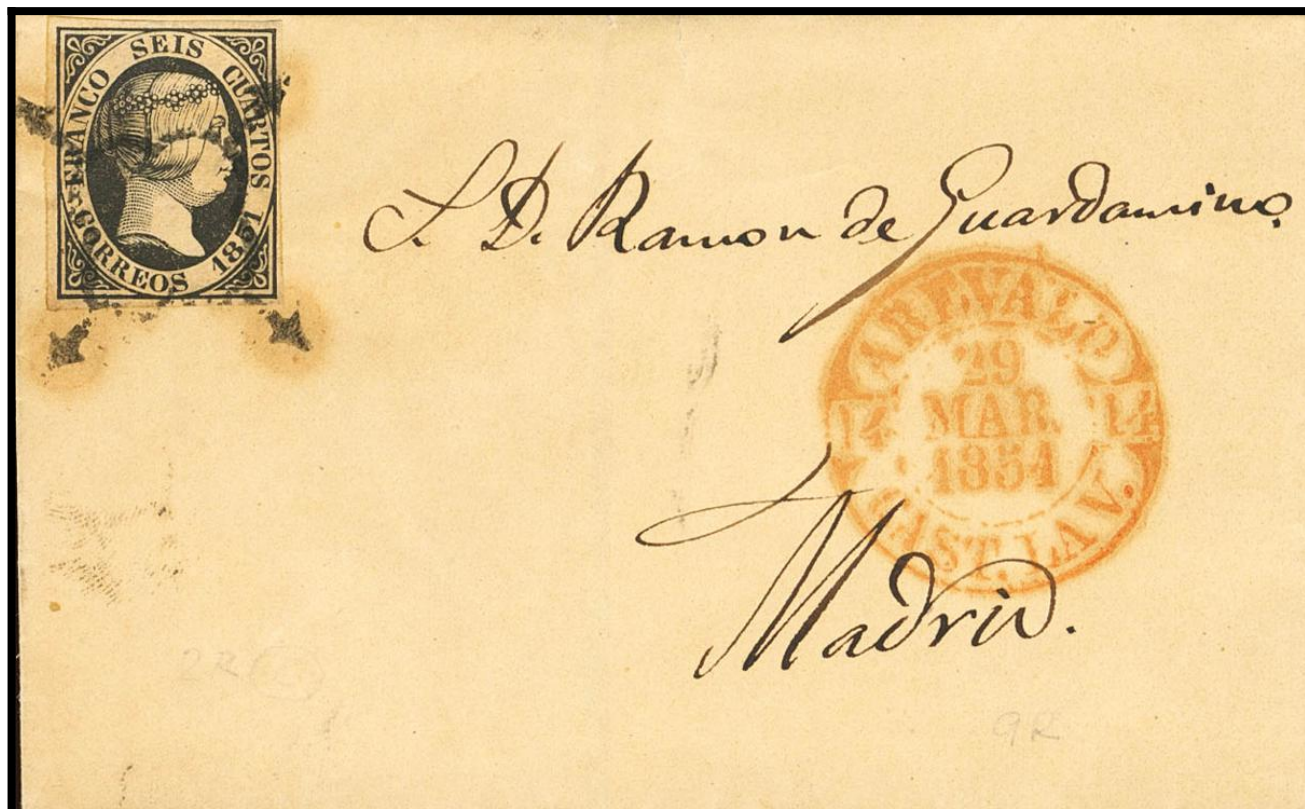 FRANCO SEIS CUARTOS
CORREOS 1851
S. D. Ramon de Guardamino.
AREVALO
29
MAR.
1851
14 14
CAST. LA V.
Madrid.
9R